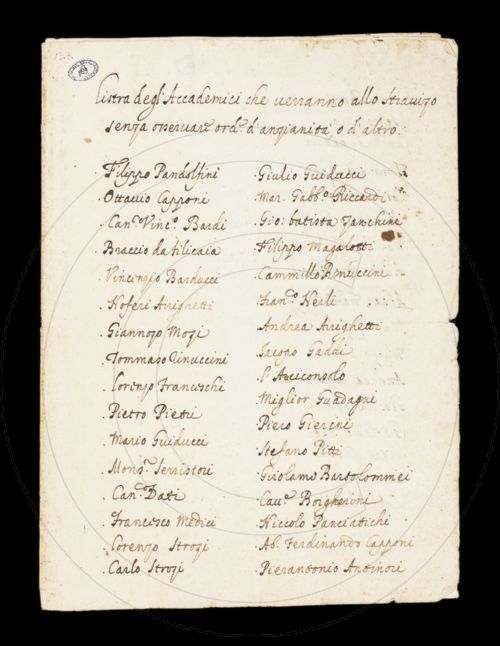 Listra degl'Accademici che verranno allo Stravizo
senza osservare ord.e d'anzianità o d'altro.
.Filippo Pandolfini
.Ottavio Capponi
.Can.co Vinc.o Bardi
.Braccio da filicaia
.Vincenzio Barducci
.Noferi Arrighetti
.Giannozo Mozi
.Tommaso Rinuccini
.Lorenzo Franceschi
.Pietro Pieri
.Mario Guiducci
.Mons.r Serristori
.Can.co Dati
.Francesco Medici
.Lorenzo Strozi
.Carlo Strozi
.Giulio Guiducci
.Mar. Gabb.o Riccardi
.Gio: batista Zanchini
.Filippo Magalotti
.Cammillo Rinuccini
.Fran.co Nerli
.Andrea Arrighetti
.Iacopo Gaddi
.L'Arciconsolo
.Miglior Guadagni
.Piero Gierini
.Stefano Pitti
.Girolamo Bartolommei
.Cav.re Borgherini
.Niccolo Panciatichi
.Ab. Ferdinando Capponi
.Pierantonio Antinori